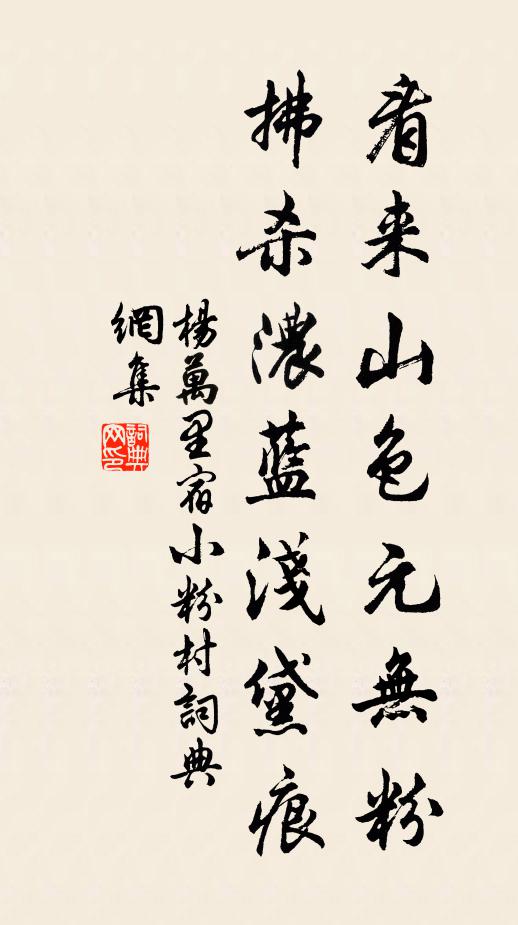 看来山色元無粉
拂杀濃藍淺黛痕
楊萬里宿小粉村詞典
網集
詞典
网印